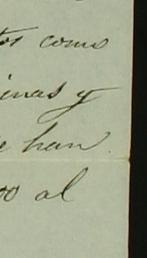 tos como
inas y
e han
00 al